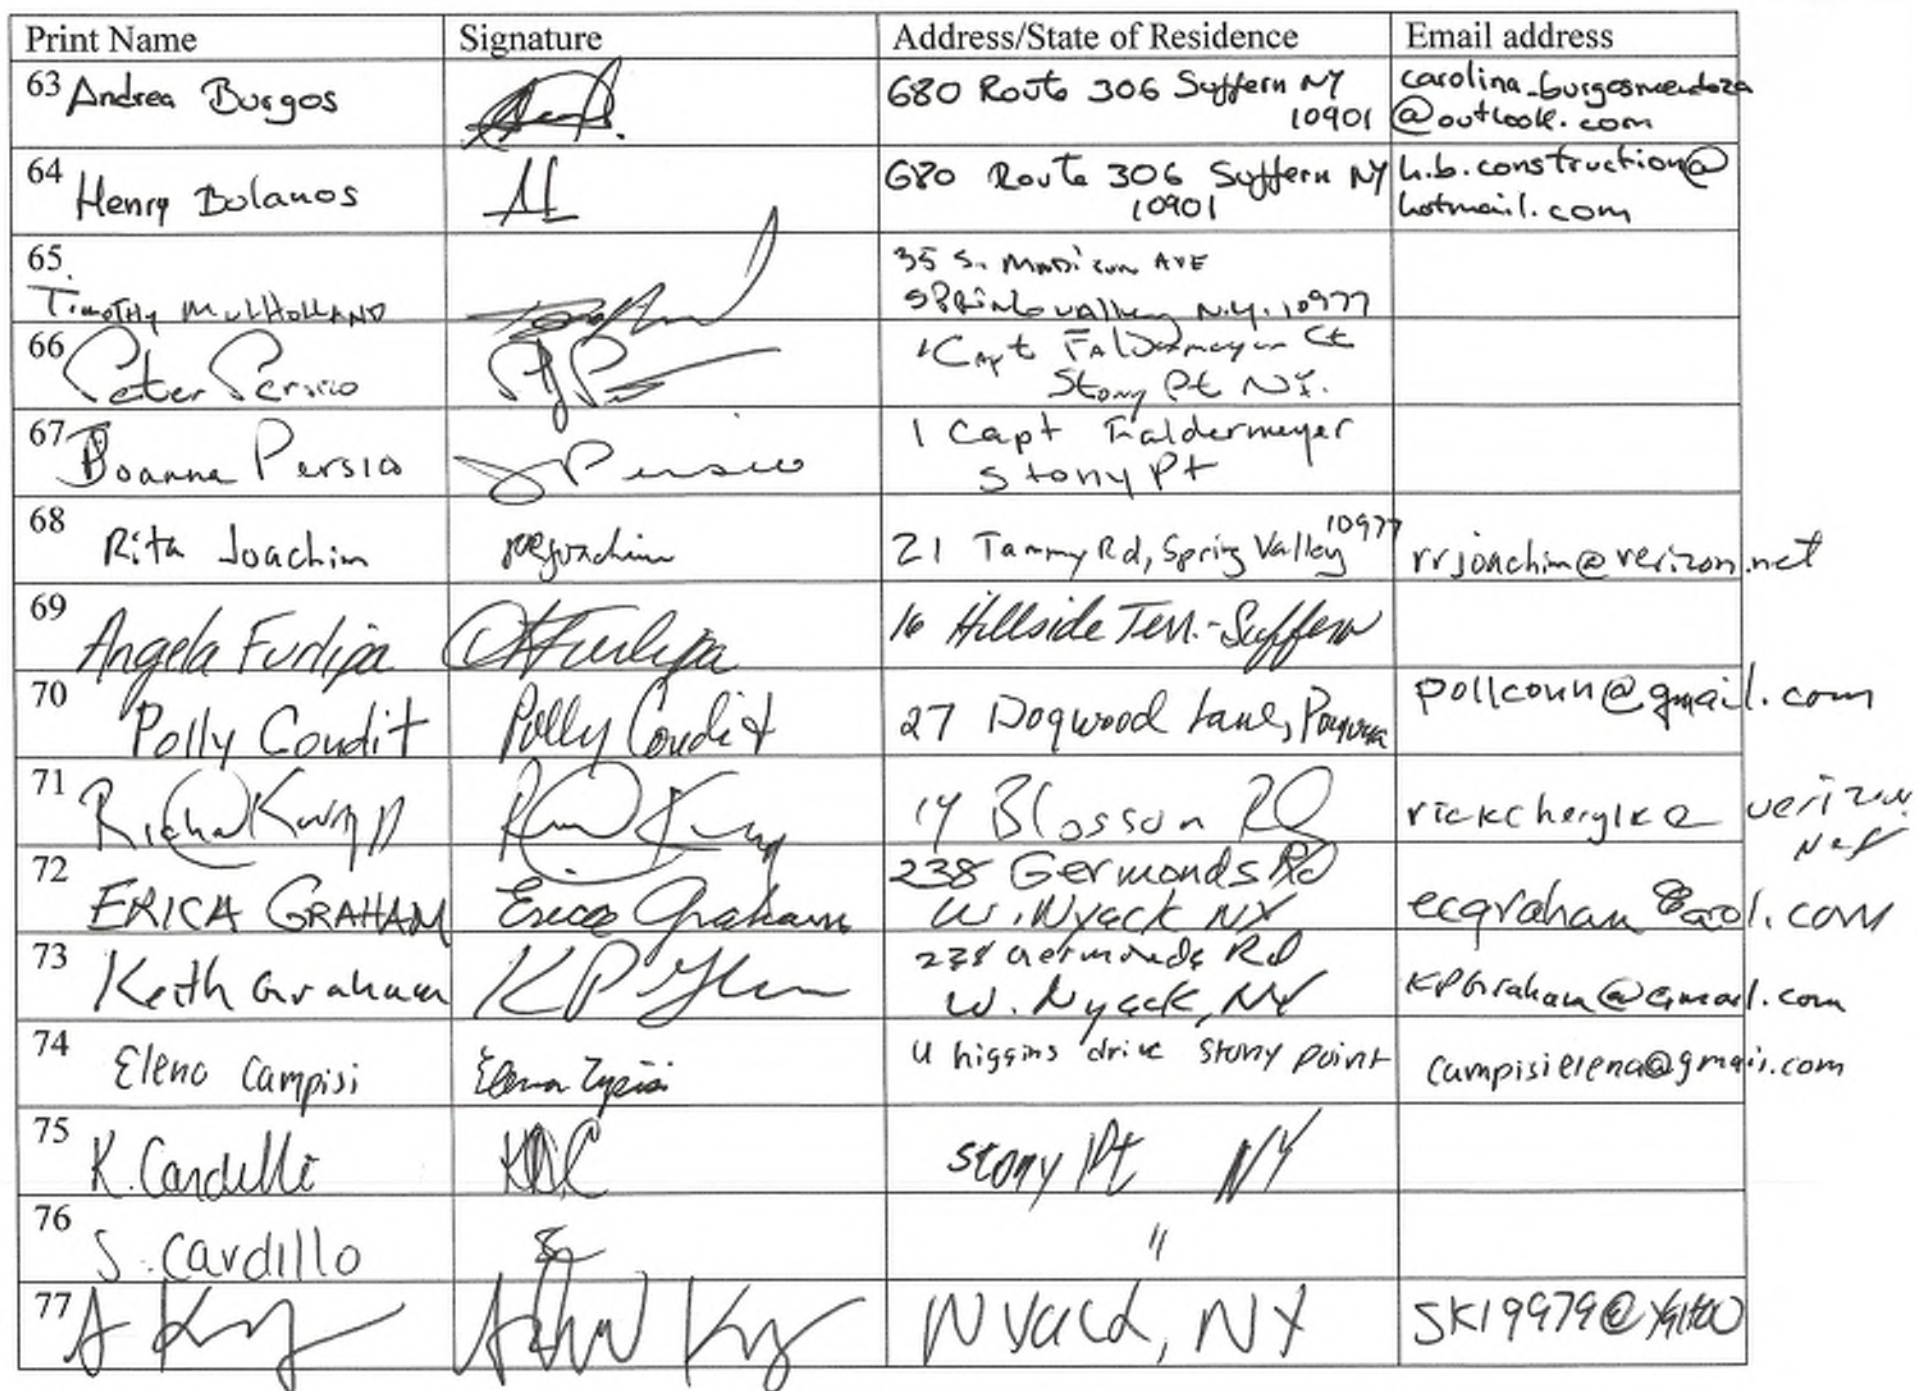 Print Name Signature Address/State of Residence Email address
63 Andrea Burgos 680 Route 306 Suffern NY 10901 carolina_burgosmendoza
@outlook.com
64 Henry Bolanos 680 Route 306 Suffern NY 10901 h.b.construction@
hotmail.com
65. Timothy MulHollAND 35 S. Madison AVE
Spring valley N.Y. 10977
66 Peter Persico 1 Capt Faldermeyer Ct
Stony Pt NY.
67 Joanne Persico J Persico 1 Capt Faldermeyer
Stony Pt
68 Rita Joachim 21 Tammy Rd, Spring Valley 10977 rrjoachim@verizon.net
69 Angela Furlipa 16 Hillside Terr.-Suffern
70 Polly Condit Polly Condit 27 Dogwood Lane, Pomona pollconn@gmail.com
71 14 Blossom Rd rickcherylk@ verizon.
net
72 ERICA GRAHAM Erica Graham 238 Germonds Rd
W. Nyack NY ecgraham@aol.com
73 Keith Graham 238 Germonds Rd
W. Nyack, NY KPGraham@Gmail.com
74 Elena Campisi higgins drive Stony point campisielena@gmail.com
75 K. Cardillo Stony Pt NY
76 S. Cardillo "
77 Nyack, NY SK19979@YAHOO